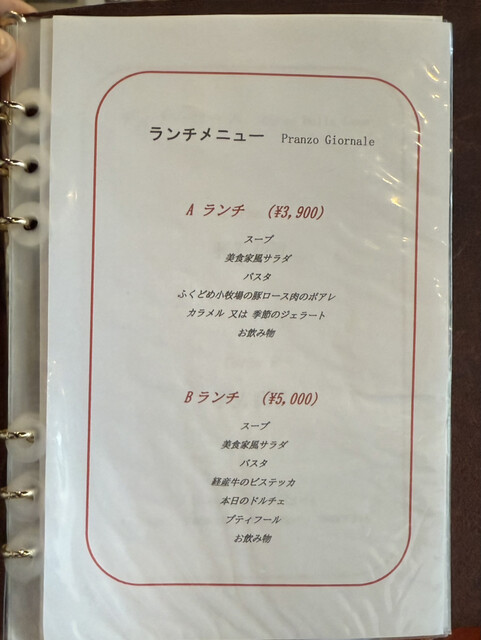 ランチメニュー Pranzo Giornale
A ランチ (¥3,900)
スープ
美食家風サラダ
パスタ
ふくどめ小牧場の豚ロース肉のポアレ
カラメル 又は 季節のジェラート
お飲み物
B ランチ (¥5,000)
スープ
美食家風サラダ
パスタ
経産牛のビステッカ
本日のドルチェ
プティフール
お飲み物